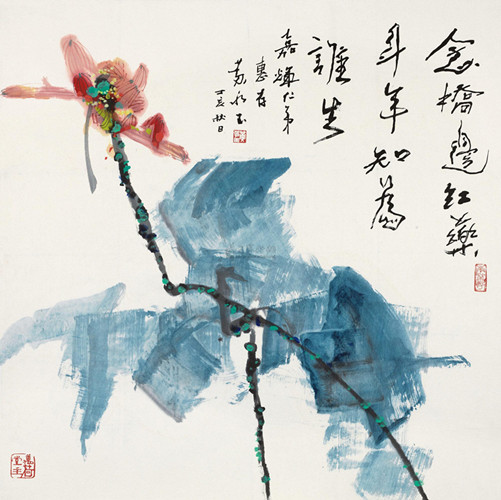 念橋邊紅藥
年年知為
誰生
嘉煒仁弟
惠存
黄永玉
丁亥秋日